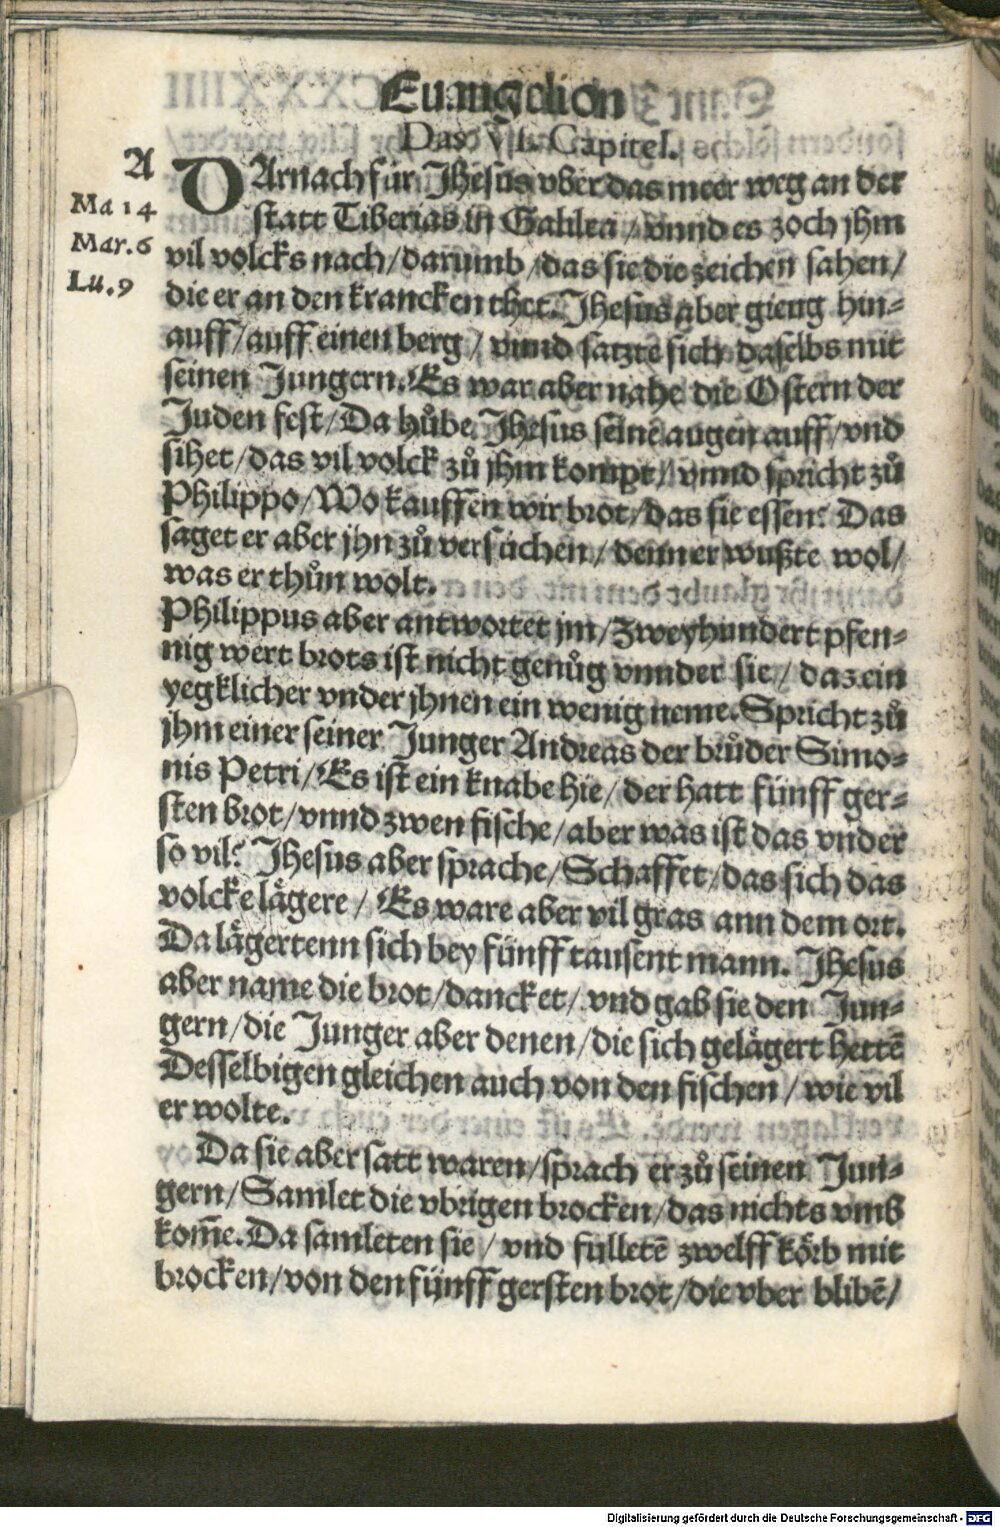 Euangelion
Das VI. Capitel.
A
Ma 14
Mar. 6
Lu. 9
DArnach für Jhesus vber das meer weg an der
statt Tiberias in Galilea / vnnd es zoch jhm
vil volcks nach / darumb / das sie die zeichen sahen /
die er an den krancken thet. Jhesus aber gieng hin=
auff / auff einen berg / vnnd satzte sich daselbs mit
seinen Jungern. Es war aber nahe die Ostern der
Juden fest / Da hůbe Jhesus seine augen auff / vnd
sihet / das vil volck zů jhm kompt / vnnd spricht zů
Philippo / Wo kauffen wir brot / das sie essen? Das
saget er aber jhn zů versůchen / denn er wußte wol /
was er thůn wolt.
Philippus aber antwortet jm / Zweyhundert pfen=
nig wert brots ist nicht genůg vnnder sie / daz ein
yegklicher vnder jhnen ein wenig neme. Spricht zů
jhm einer seiner Junger Andreas der brůder Simo=
nis Petri / Es ist ein knabe hie / der hatt fünff ger=
sten brot / vnnd zwen fische / aber was ist das vnder
so vil? Jhesus aber sprache / Schaffet / das sich das
volcke lägere / Es ware aber vil gras ann dem ort.
Da lägertenn sich bey fünff tausent mann. Jhesus
aber name die brot / dancket / vnd gab sie den Jun=
gern / die Junger aber denen / die sich gelägert hettē
Desselbigen gleichen auch von den fischen / wie vil
er wolte.
Da sie aber satt waren / sprach er zů seinen Jun=
gern / Samlet die vbrigen brocken / das nichts vmb
kom̄e. Da samleten sie / vnd fulletē zwelff körb mit
brocken / von den fünff gersten brot / die vber blibē /
Digitalisierung gefördert durch die Deutsche Forschungsgemeinschaft - DFG